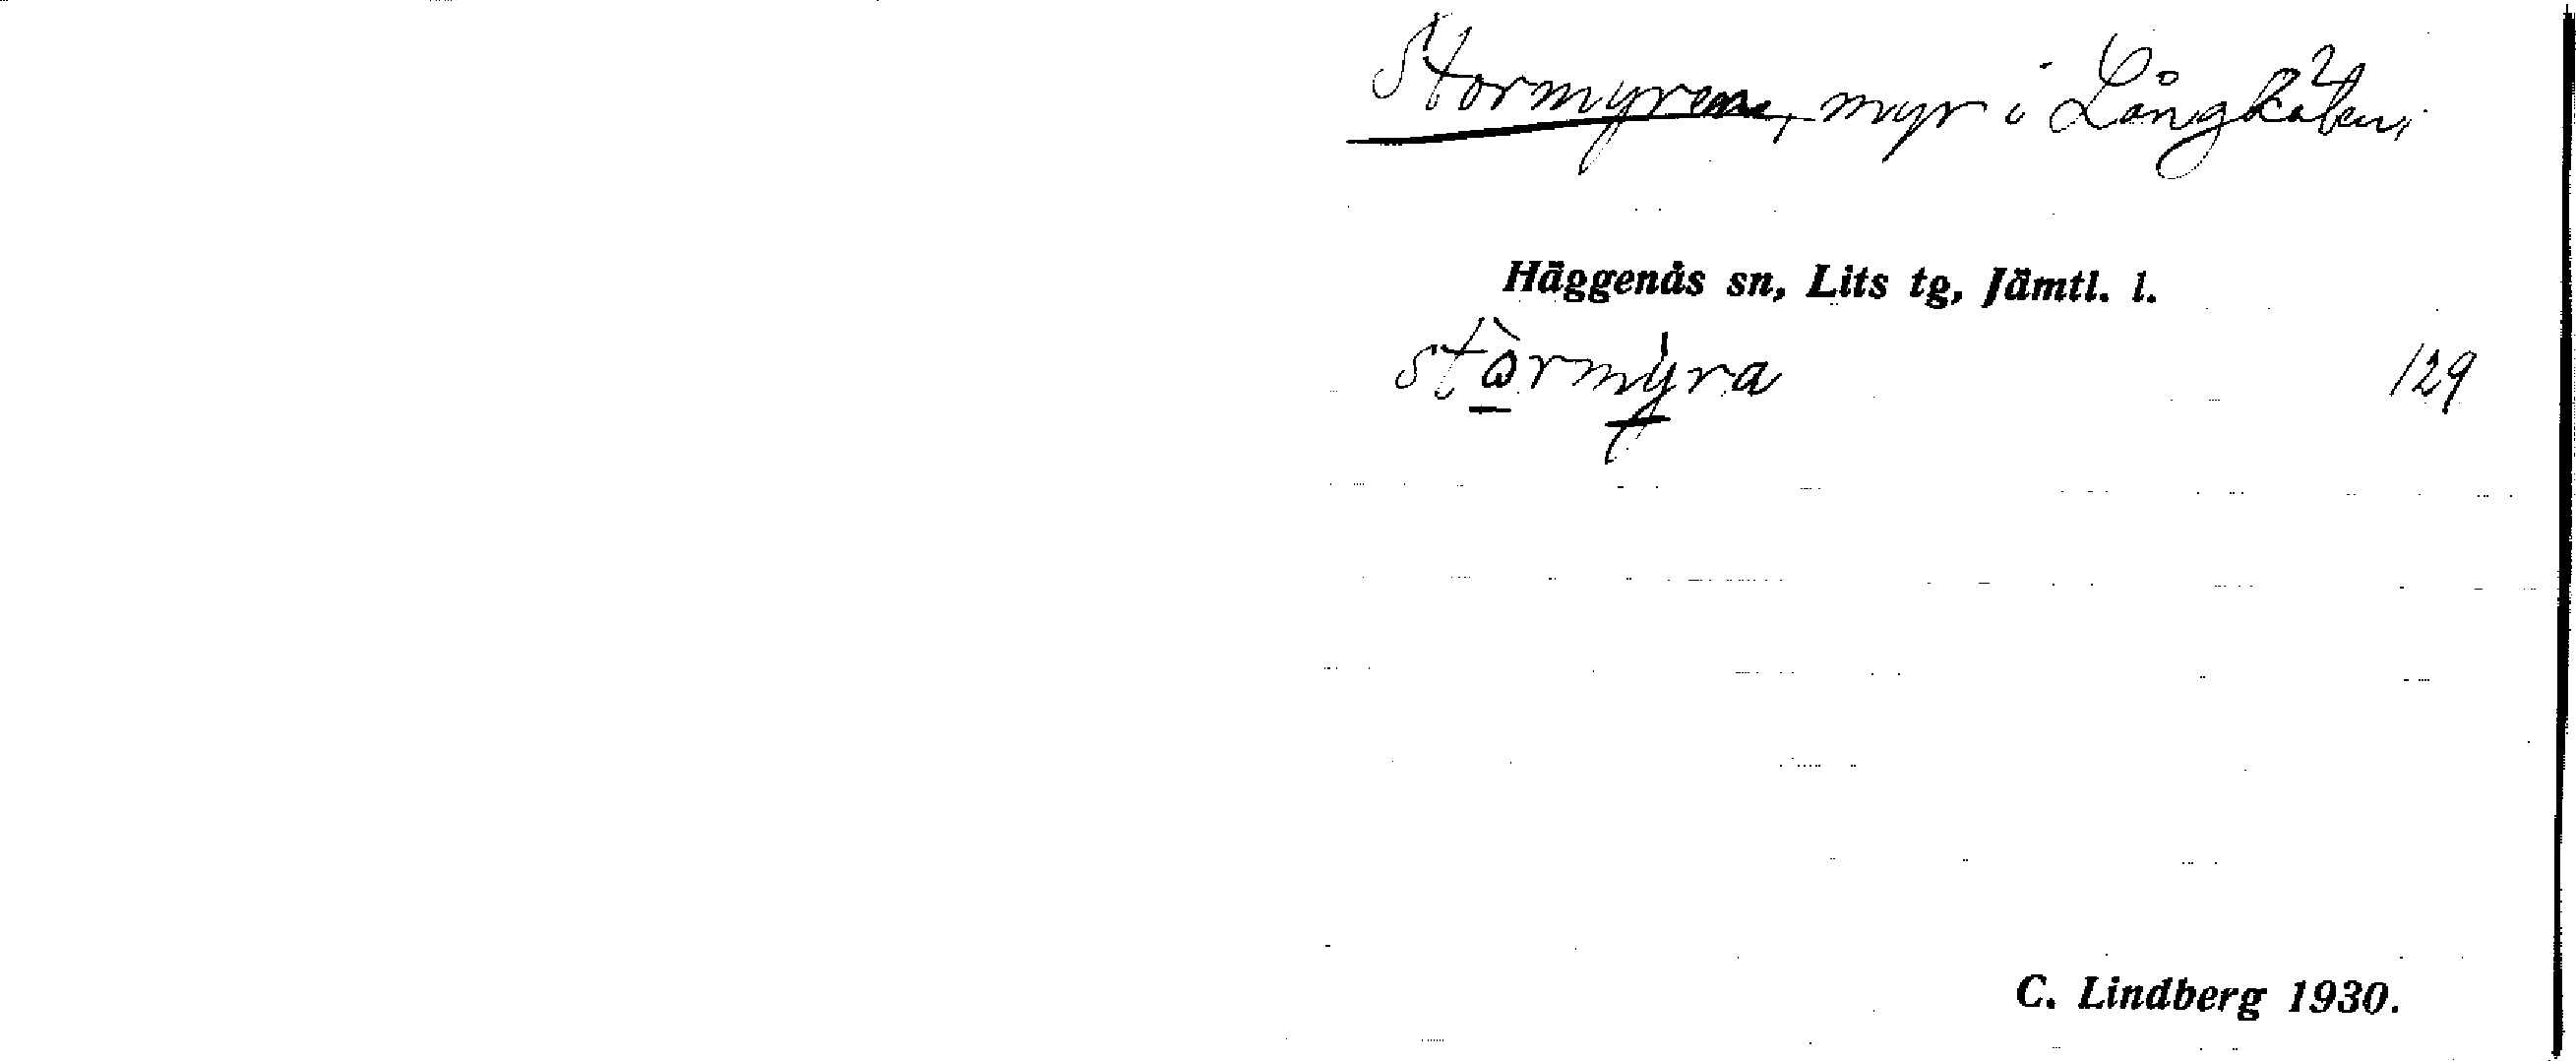 Stormyren, myr i Långkåten,
Häggenås sn, Lits tg, Jämtl. l.
stòrmýra 129
C. Lindberg 1930.